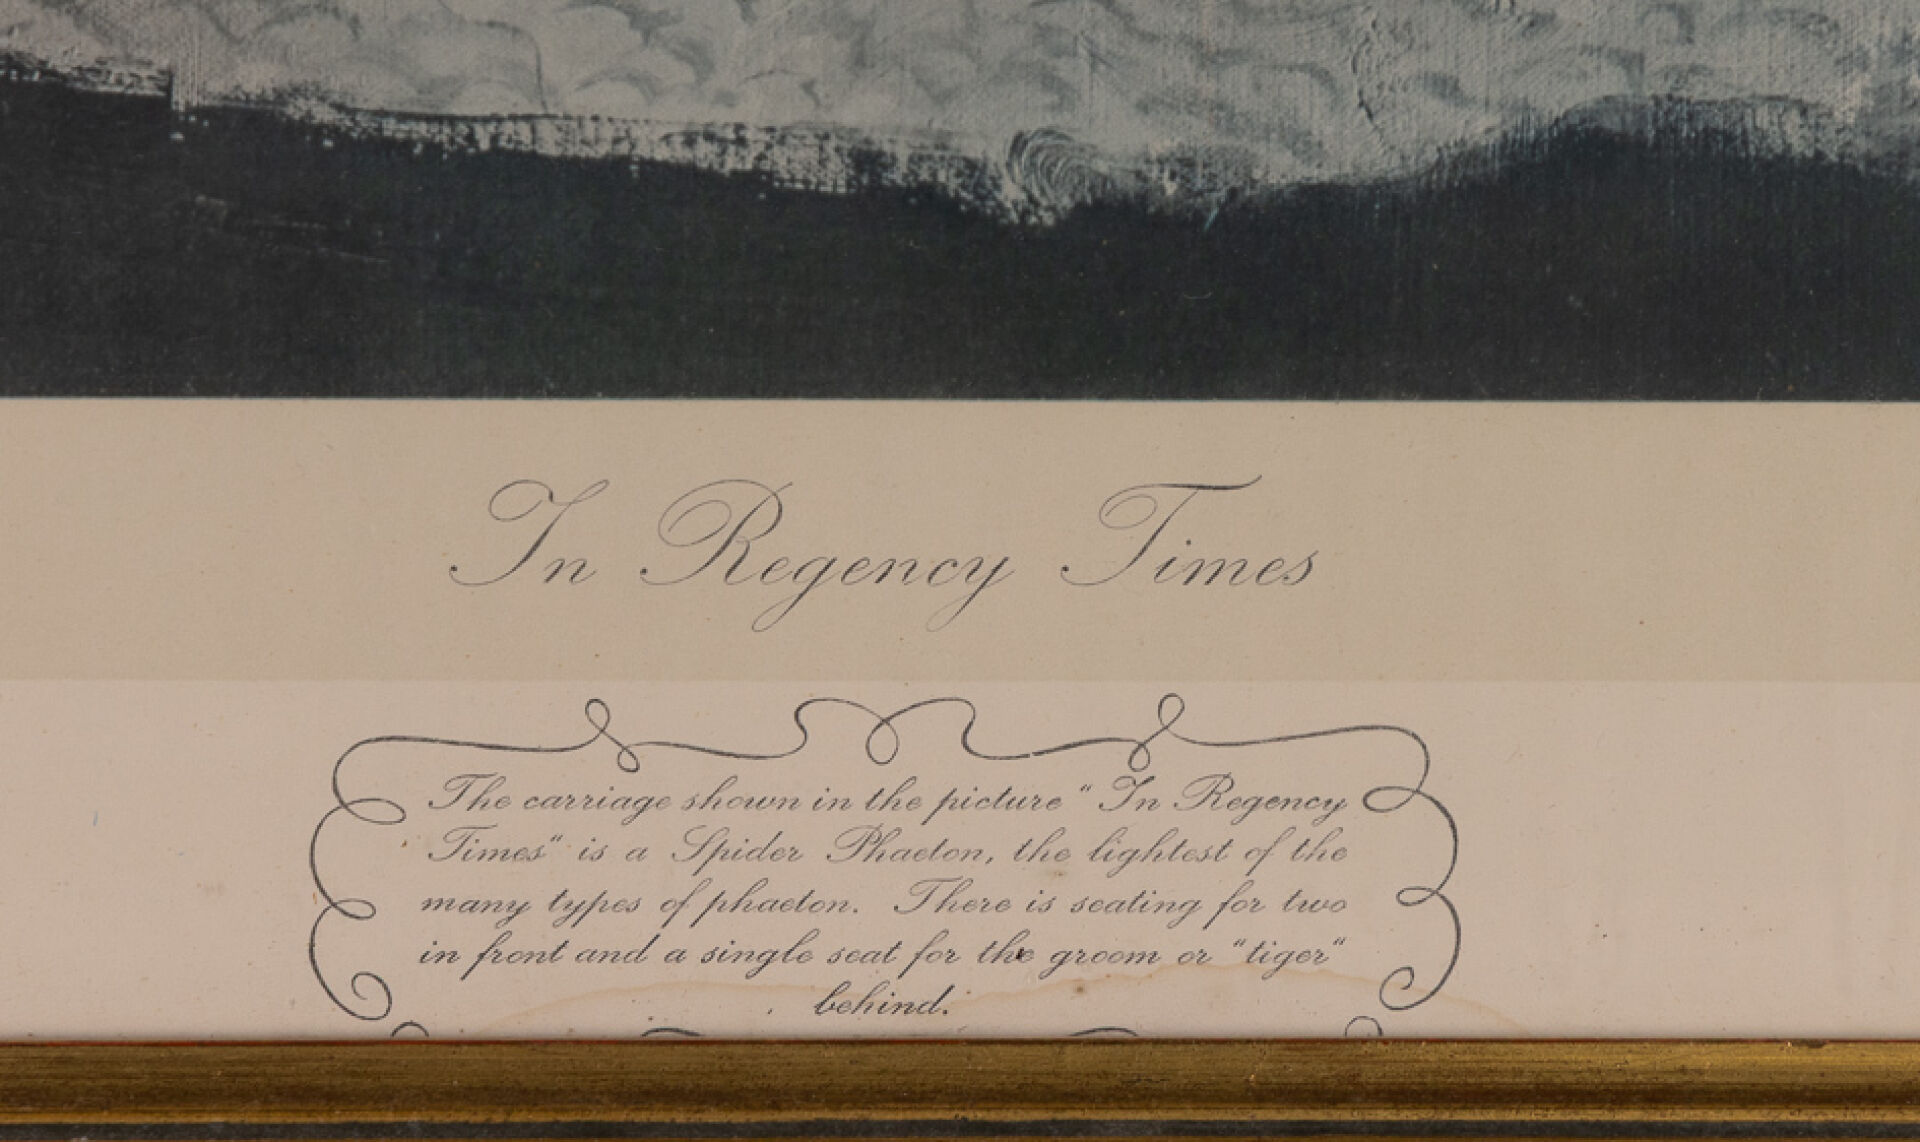 In Regency Times
The carriage shown in the picture “In Regency
Times“ is a Spider Phaeton, the lightest of the
many types of phaeton. There is seating for two
in front and a single seat for the groom or “tiger“
behind.